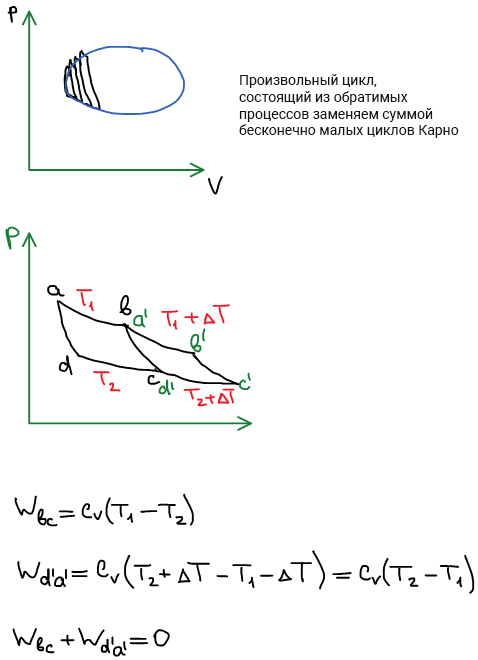 P
Произвольный цикл,
состоящий из обратимых
процессов заменяем суммой
бесконечно малых циклов Карно
V
P
a T₁ в a' T₁ + ΔT
в'
d T₂ c d' T₂+ΔT c'
Wвc = Cv(T₁ − T₂)
Wd'a' = Cv(T₂ + ΔT − T₁ − ΔT) = Cv(T₂ − T₁)
Wвc + Wd'a' = 0